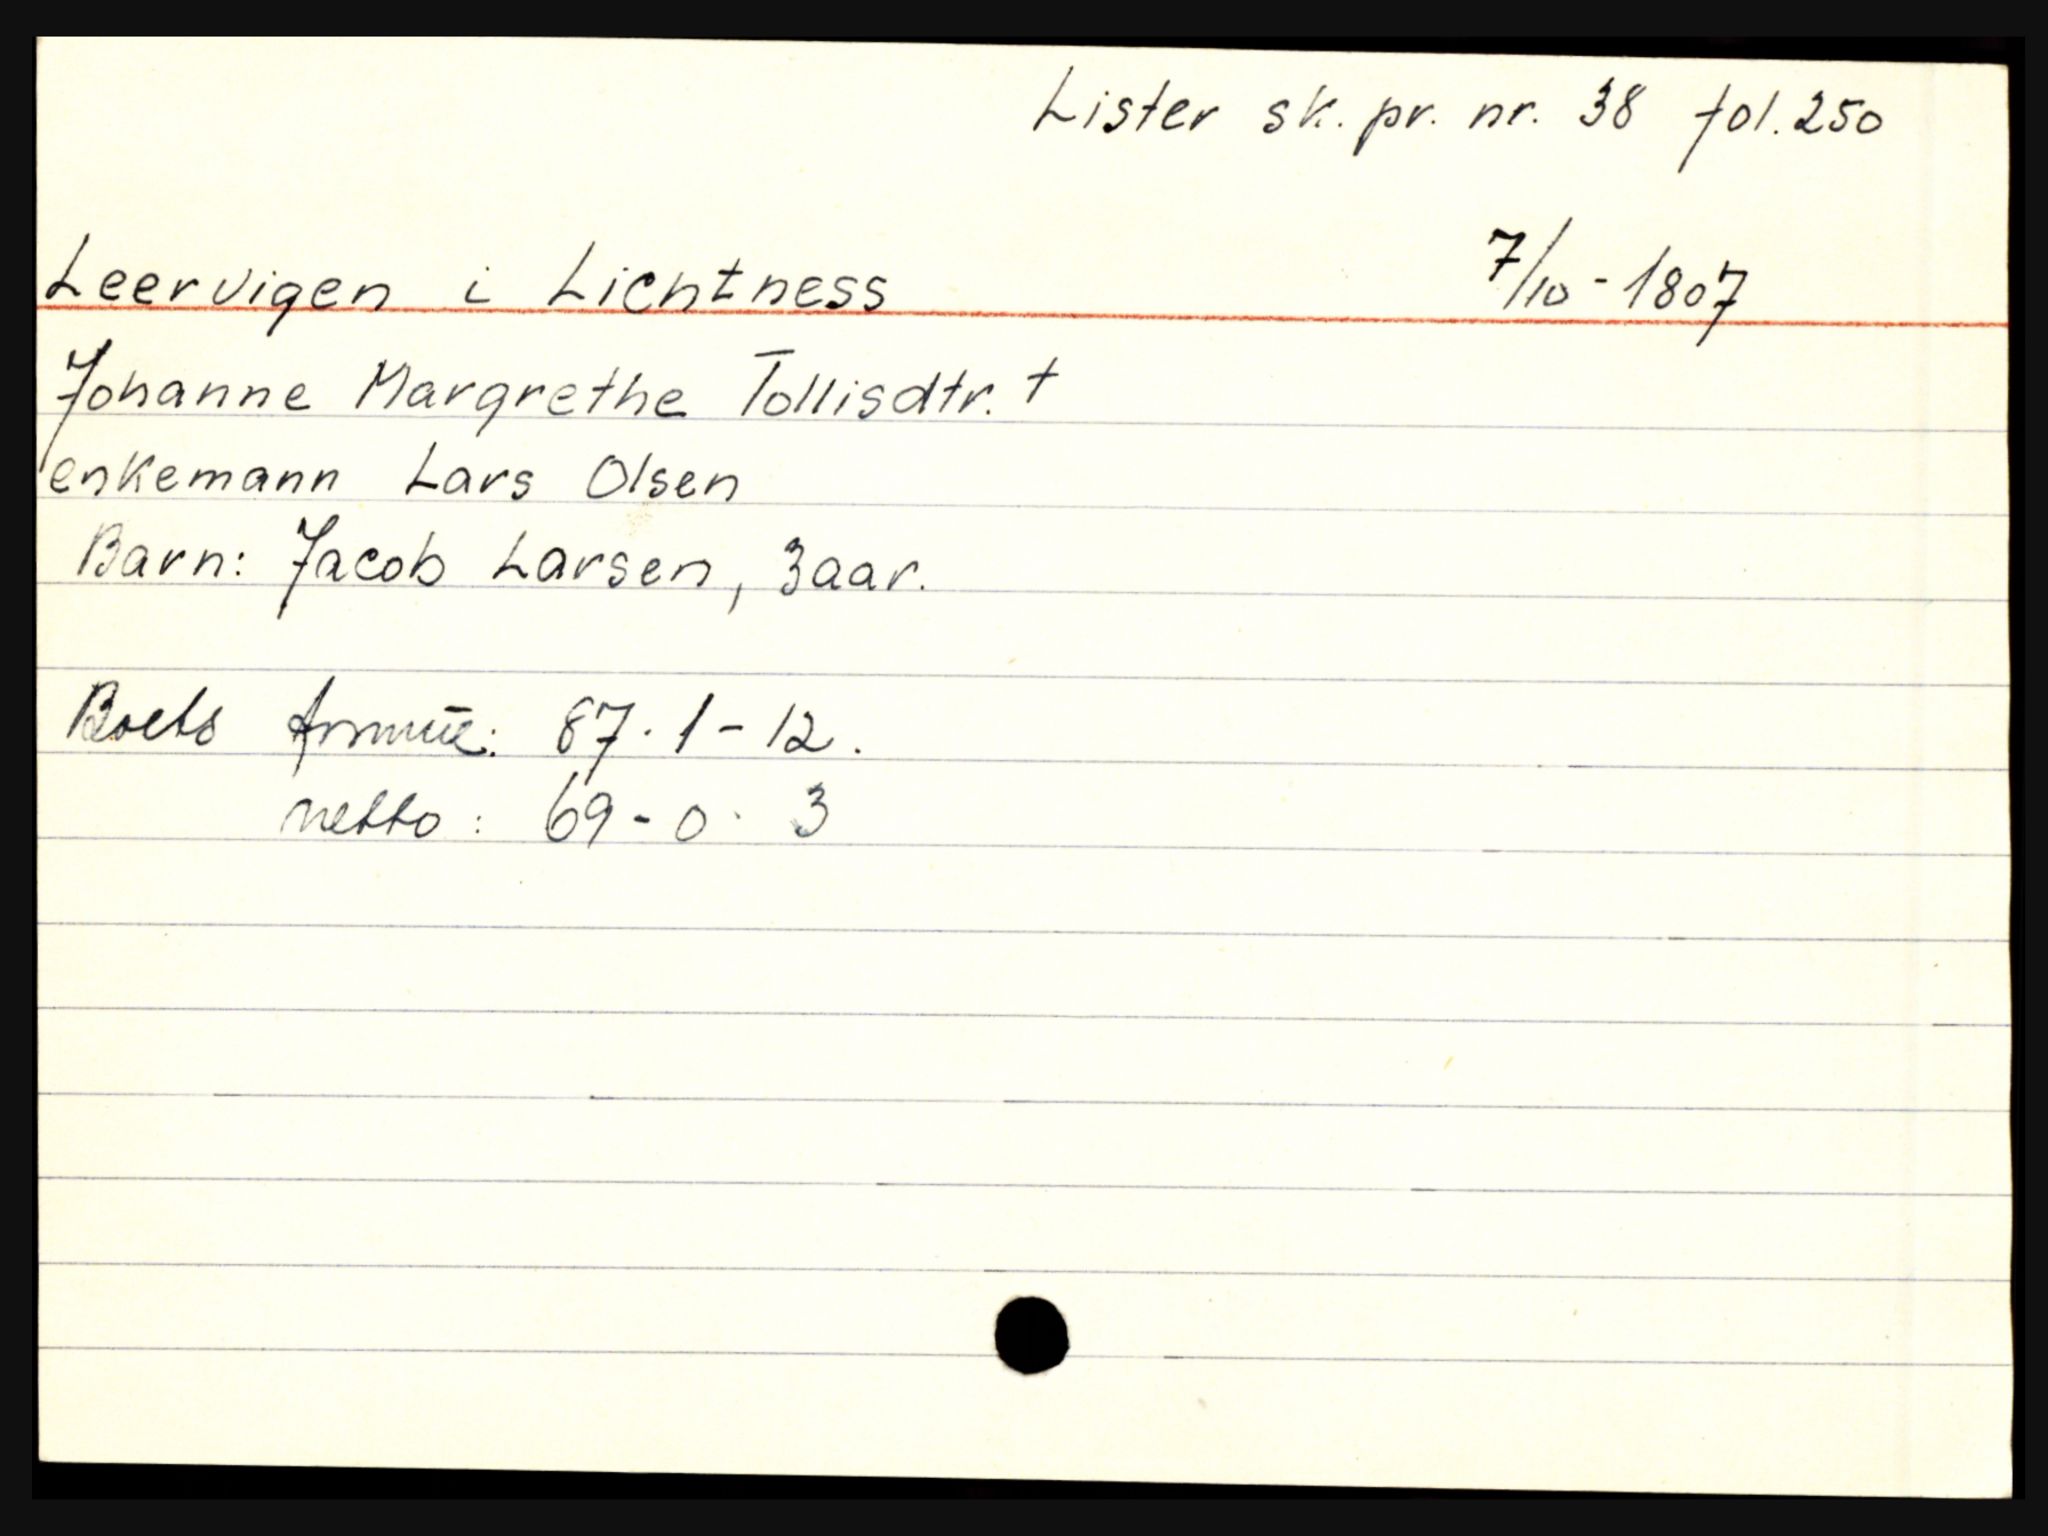 Lister sk. pr. nr. 38 fol. 250
Leervigen i Lichtness 7/10 - 1807
Johanne Margrethe Tollisdtr. †
enkemann Lars Olsen
Barn: Jacob Larsen, 3 aar.
Boets : 87 - 1 - 12.
netto : 69 - 0 - 3